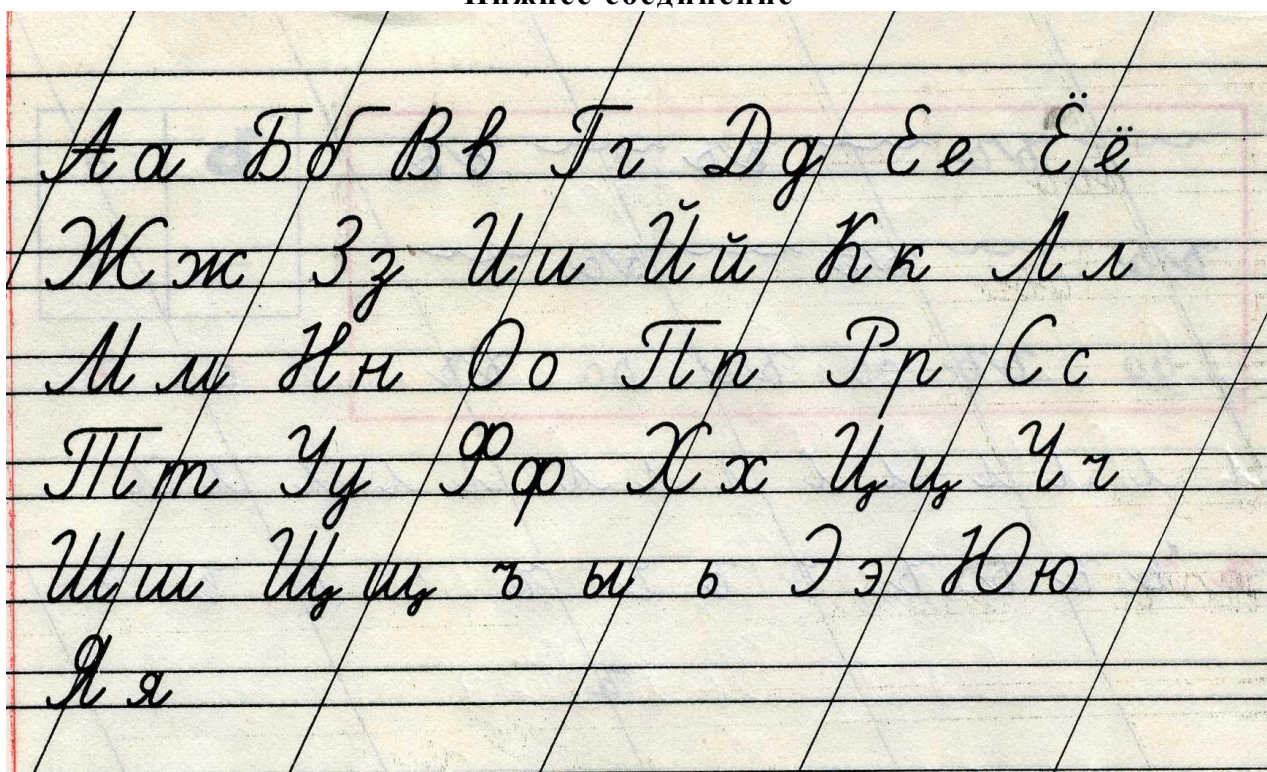 Нижнее соединение
Аа Бб Вв Гг Дд Ее Ёё
Жж Зз Ии Йй Кк Лл
Мм Нн Оо Пп Рр Сс
Тт Уу Фф Хх Цц Чч
Шш Щщ ъ ы ь Ээ Юю
Яя